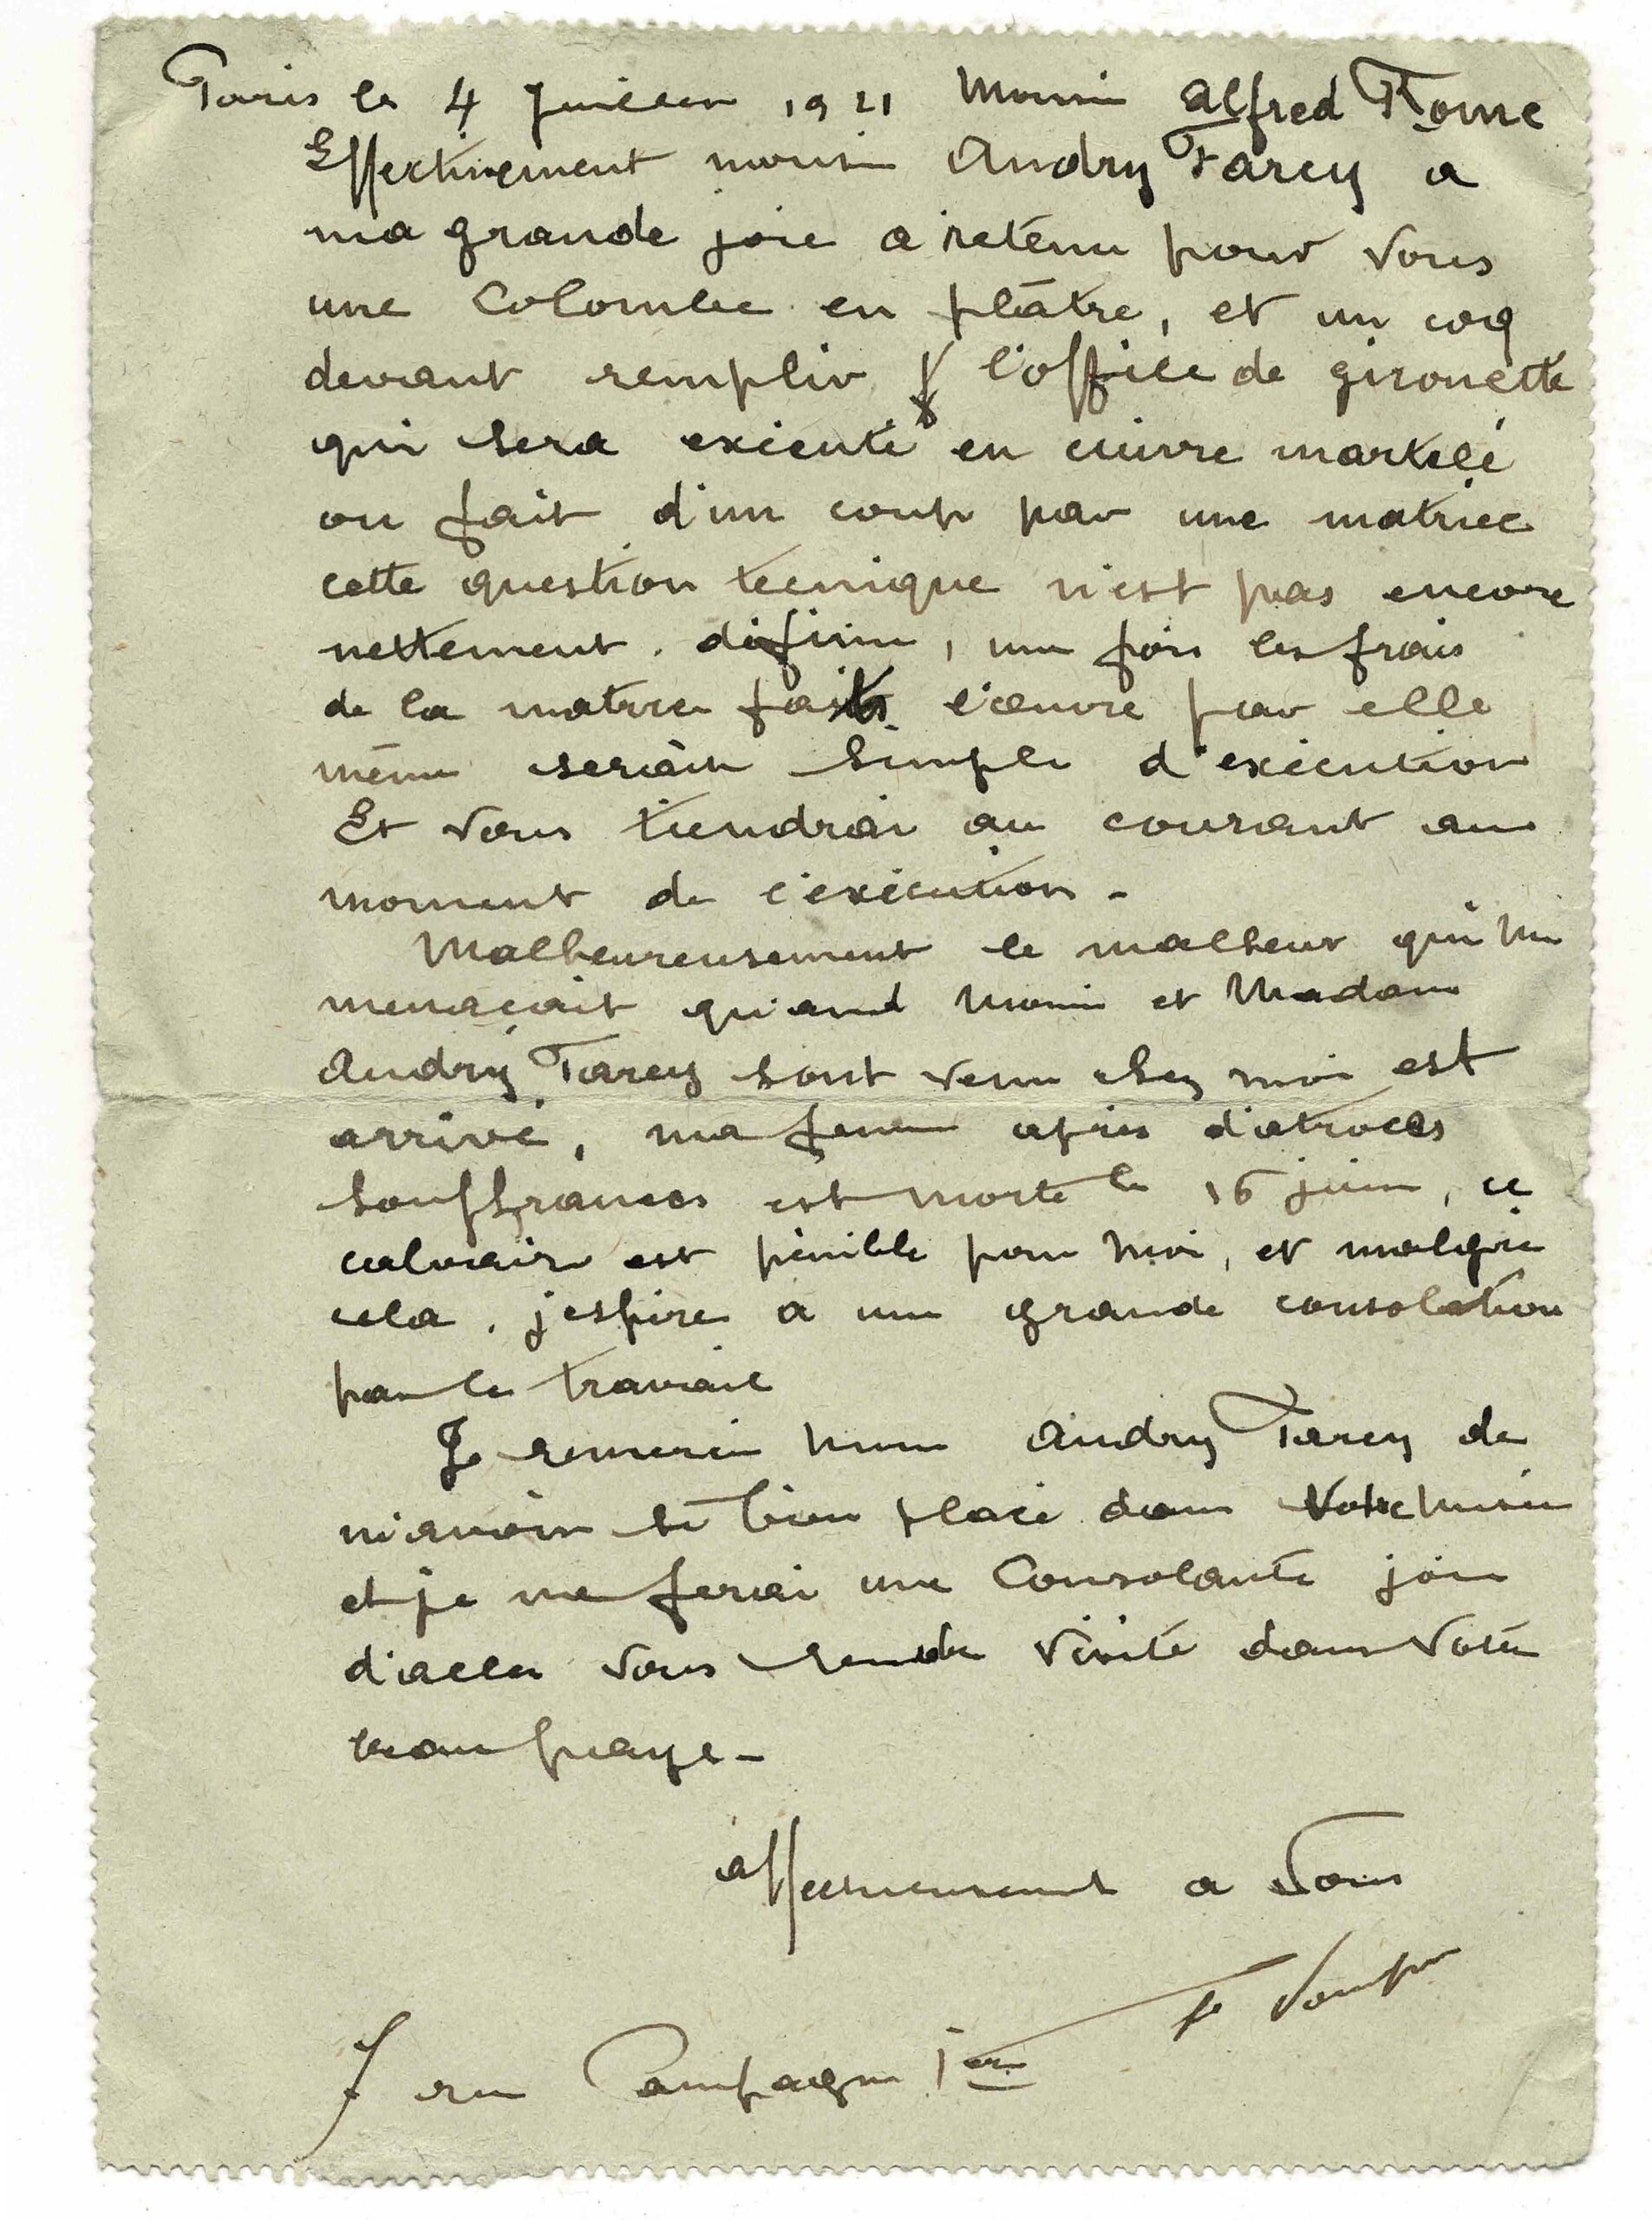 Paris le 4 Juillet 1921 Monsieur Alfred Rome
Effectivement monsieur Andry Farcy a
ma grande joie a retenu pour vous
une Colombe en plâtre, et un coq
devant remplir l'office de girouette
qui sera exécuté en cuivre martelé
ou fait d'un coup par une matrice
cette question tecnique n'est pas encore
nettement définie, une fois les frais
de la matrice faits l'œuvre par elle
même serait simple d'exécution
Et vous tiendrai au courant au
moment de l'exécution -
Malheureusement le malheur qui me
menaçait quand Monsieur et Madame
Andry Farcy sont venu chez moi est
arrivé, ma femme après d'atroces
souffrances est morte le 16 juin, ce
calvaire est pénible pour moi, et malgré
cela, j'espère a une grande consolation
par le travail
Je remercie Andry Farcy de
m'avoir si bien placé dans Votre Musée
et je me ferai une Consolante joie
d'aller vous rendre visite dans votre
beau pays -
affectueusement a Vous
F Pompon
3 rue Campagne 1ère